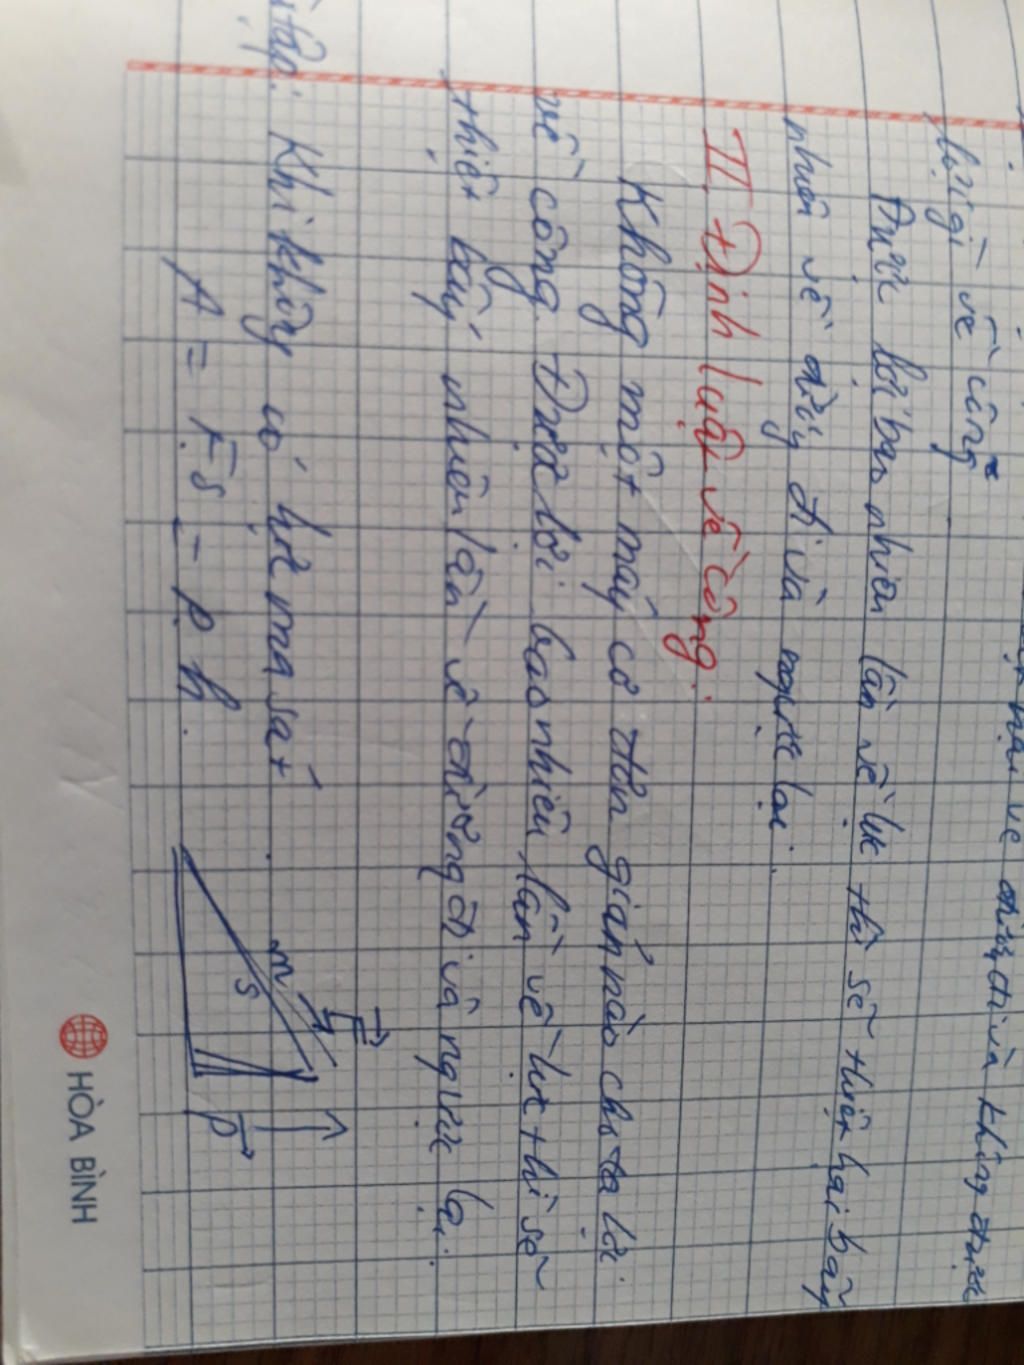 lại về đường đi và không được
lợi gì về công
Được lợi bao nhiêu lần về lực thì sẽ thiệt hại bấy
nhiêu về đường đi và ngược lại.
II Định luật về công:
Không một máy cơ đơn giản nào cho ta lợi
về công. Được lợi bao nhiêu lần về lực thì sẽ
thiệt bấy nhiêu lần về đường đi và ngược lại.
tập: Khi không có lực ma sát
A = F.s = P.h.
m
s
F
P
HÒA BÌNH